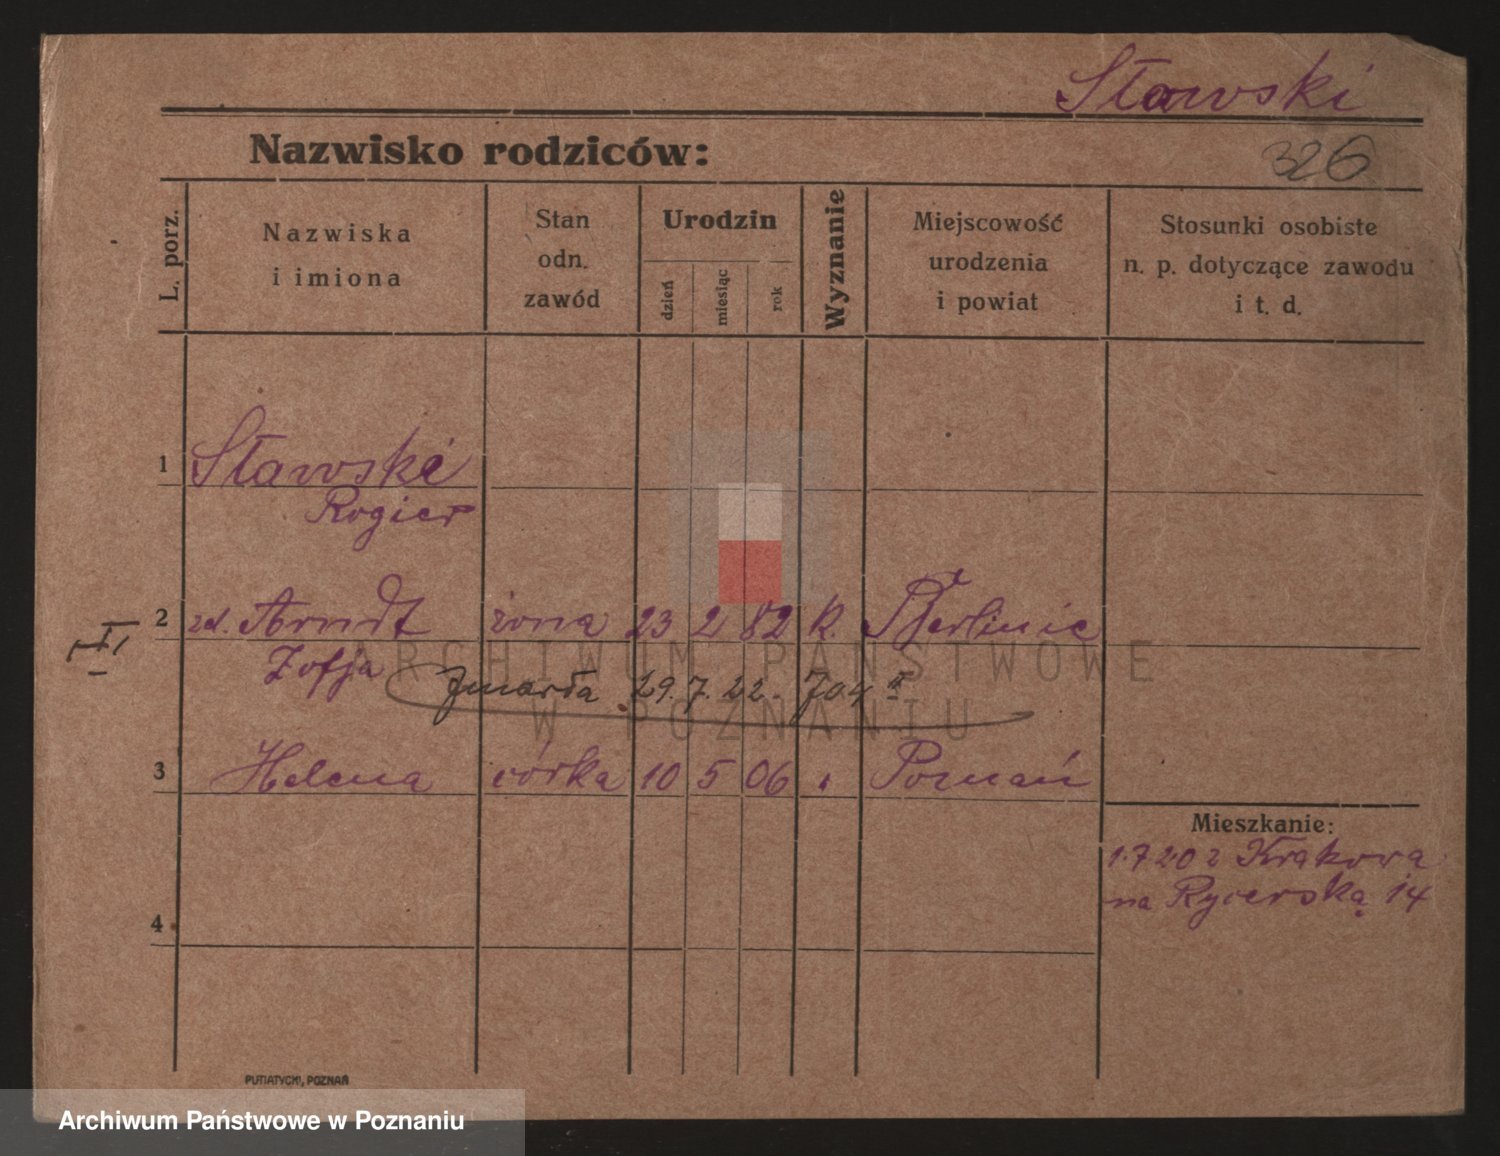 Sławski
Nazwisko rodziców:
326
L. porz.
Nazwiska
i imiona
Stan
odn.
zawód
Urodzin
dzień
miesiąc
rok
Wyznanie
Miejscowość
urodzenia
i powiat
Stosunki osobiste
n. p. dotyczące zawodu
i t. d.
1 Sławski
Rogier
2 zd. Arndt żona 23 2 82 k. Berlinie
Zofja zmarła 29.7.22. 704 II
3 Helena córka 10 5 06 Poznań
Mieszkanie:
1.7 20 z Krakowa
na Rycerską 14
4
PUTIATYCKI, POZNAŃ
ARCHIWUM PAŃSTWOWE
W POZNANIU
Archiwum Państwowe w Poznaniu